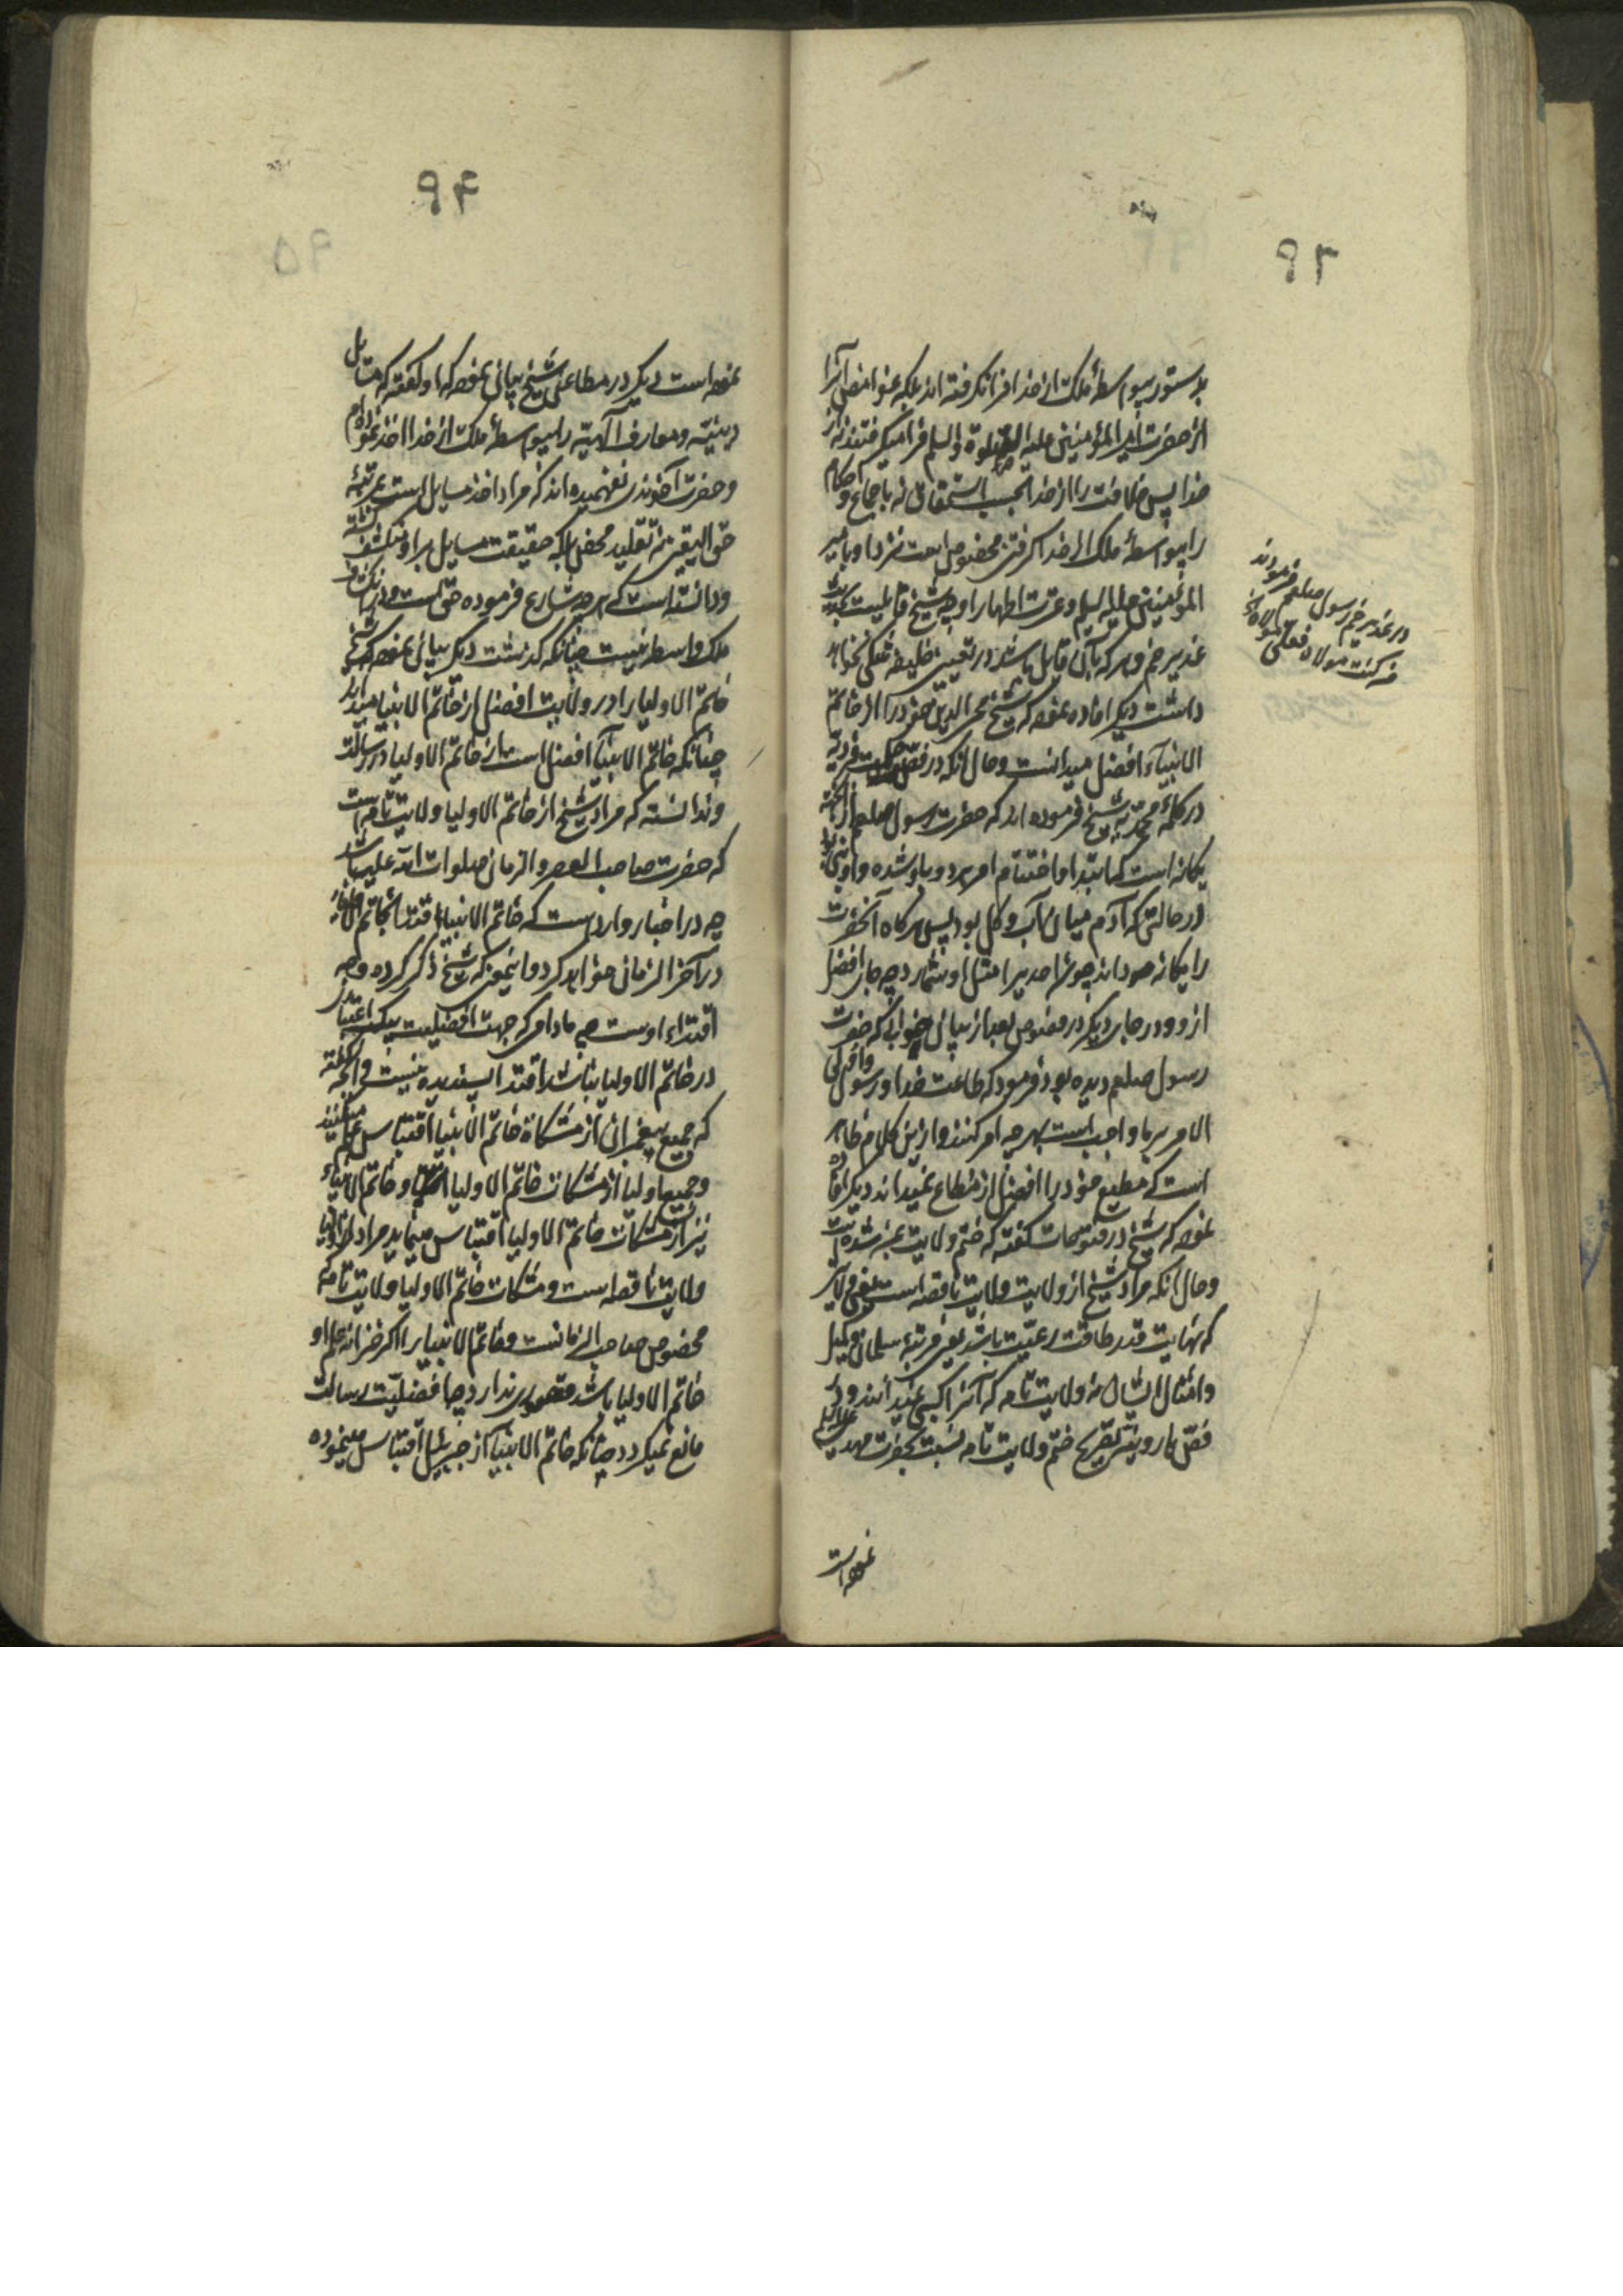 ۹۳
بدستور بیواسطهٔ ملک از خدا فرا نگرفته‌اند بلکه غوامض آنرا
از حضرت امیرالمؤمنین علیه الصلوة والسلم فرا میگرفتند نه از
خدا پس خلافت را از خدا بحسب استحقاق نه باجماع و احکام
را بیواسطهٔ ملک از خدا گرفتن مخصوص است نزد او بامیر
المؤمنین علیه السلم و عترت اطهار او چه شیخ قایلست بحدیث
غدیر خم و هر که بآن قایل باشد در تعیین خلیفه شکی نخواهد
داشت دیگر افاده نموده که شیخ محی الدین خود را از خاتم
الانبیاء افضل میدانست و حال آنکه در فص حکمت فردیه
در کلمهٔ محمدیه شیخ فرموده‌اند که حضرت رسول صلعم از آنجهة
یگانه است که ابتدا و اختتام امر بدو باو شده و او نبی بود
در حالتی که آدم میان آب و گل بود پس هرگاه آنحضرت
را یگانه میدانند چون احدیرا مثل او شمارد چه جای افضل
از او و در جای دیگر در فصوص بعد از بیان خوابی که حضرت
رسول صلعم دیده بود فرمود که طاعت خدا و رسول و اولی
الامر بر ما واجب است بهر چه امر کنند و ازین کلام ظاهر
است که مطیع خود را افضل از مطاع نمیداند دیگر افاده
نموده که شیخ در فتوحات گفته که ختم ولایت بمن شده است
و حال آنکه مراد شیخ از ولایت ولایت ناقصه است یعنی ولایتی
که نهایت قدر طاقت رعیت باشد یعنی مرتبهٔ سلمان و کمیل
و امثال ایشان نه ولایت تامه که آنرا کسبی نمیدانند و در
فص هارونیه تصریح ختم ولایت تامه نسبت بحضرت مهدی علیه السلم
نموده است
در غدیر خم رسول صلعم فرمودند
من کنت مولاه فعلی مولاه
۹۴
۹۵
نموده است دیگر در مطاعن شیخ بیان نموده که او گفته که مسایل
دینیه و معارف الهیه را بیواسطهٔ ملک از خدا اخذ نموده‌ام
و حضرت آخوندی نفهمیده‌اند که مراد اخذ مسایل است بمرتبهٔ
حق الیقین نه تقلید محض بلکه حقیقت مسایل بر او منکشف گشته
و دانسته است که هر چه شارع فرموده حق است و درین انکشاف
ملک واسطه نیست چنانکه گذشت دیگر بیان نموده که شیخ
خاتم الاولیا را در ولایت افضل از خاتم الانبیا میداند
چنانکه خاتم الانبیا افضل است از خاتم الاولیا در رسالت
و ندانسته که مراد شیخ از خاتم الاولیا ولایت تامه است
که حضرت صاحب العصر و الزمان صلوات الله علیه باشد
چه در اخبار وارد است که خاتم الانبیا اقتدا بخاتم الاولیا
در آخر الزمان خواهد کرد و اینمعنی که شیخ ذکر کرده وجه
اقتداء اوست چه مادامکه جهت افضلیت بیک اعتبار
در خاتم الاولیا نباشد اقتدا پسندیده نیست و آنچه گفته
که جمیع پیغمبران از مشکاة خاتم الانبیا اقتباس علم میکنند
و جمیع اولیا از مشکات خاتم الاولیا و خاتم الانبیاء
نیز از مشکات خاتم الاولیا اقتباس مینماید مراد از اولیا
ولایت ناقصه است و مشکات خاتم الاولیا ولایت تامه که
مخصوص صاحب الزمانست و خاتم الانبیا را اگر خزانه علم او
خاتم الاولیا باشد قصوری ندارد چه افضلیت رسالت
مانع نمیگردد چنانکه خاتم الانبیا از جبرئیل اقتباس مینموده